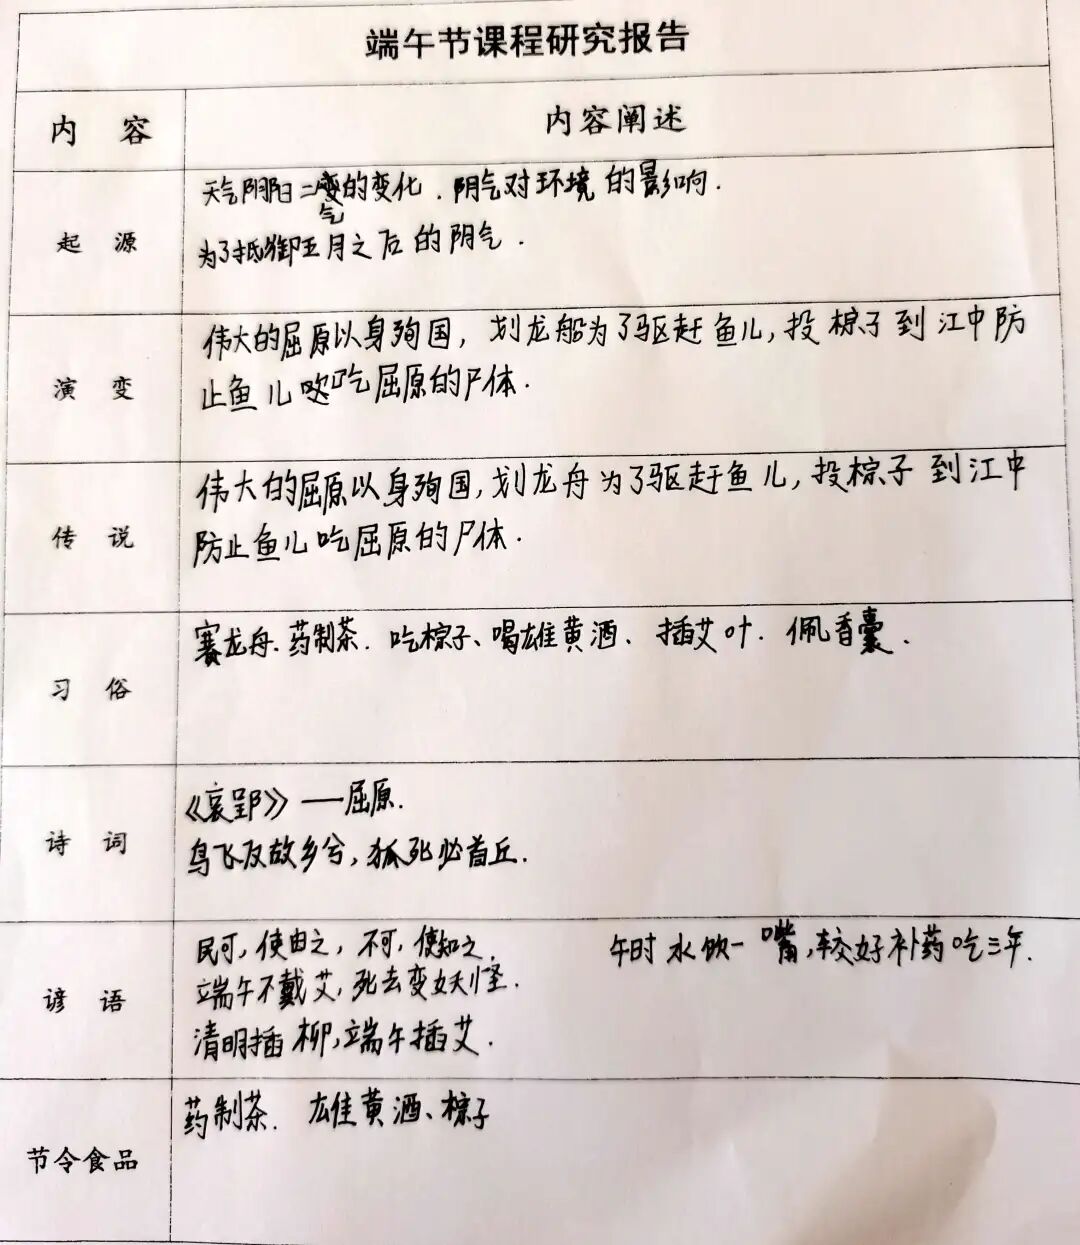 端午节课程研究报告
内 容
内容阐述
起 源
天气阴阳二气的变化.阴气对环境的影响.
为了抵御五月之后的阴气.
演 变
伟大的屈原以身殉国,划龙船为了驱赶鱼儿,投粽子到江中防
止鱼儿吃屈原的尸体.
传 说
伟大的屈原以身殉国,划龙舟为了驱赶鱼儿,投粽子到江中
防止鱼儿吃屈原的尸体.
习 俗
赛龙舟.药制茶.吃粽子、喝雄黄酒、插艾叶.佩香囊.
诗 词
《哀郢》——屈原.
鸟飞反故乡兮,狐死必首丘.
谚 语
民可,使由之,不可,使知之.
午时水饮一嘴,较好补药吃三年.
端午不戴艾,死去变妖怪.
清明插柳,端午插艾.
节令食品
药制茶.雄黄酒、粽子